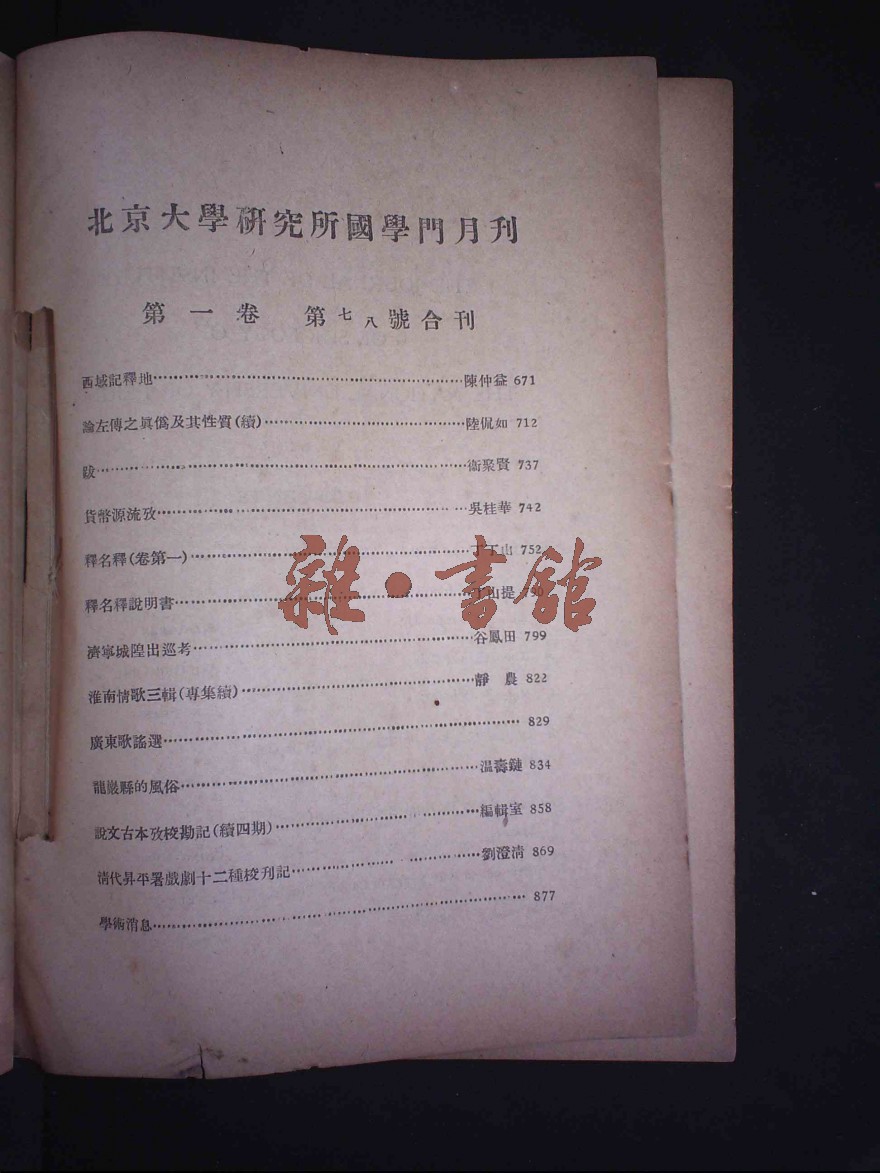 北京大學研究所國學門月刊
第一卷 第七八號合刊
西域記釋地……陳仲益 671
論左傳之眞僞及其性質(續)……陸侃如 712
跋……衞聚賢 737
貨幣源流攷……吳桂華 742
釋名釋(卷第一)……丁山 752
釋名釋說明書……山提
濟寧城隍出巡考……谷鳳田 799
淮南情歌三輯(專集續)……靜農 822
廣東歌謠選……829
龍巖縣的風俗……温壽鏈 834
說文古本攷校勘記(續四期)……編輯室 858
淸代昇平署戲劇十二種校刊記……劉澄淸 869
學術消息……877
雜·書館